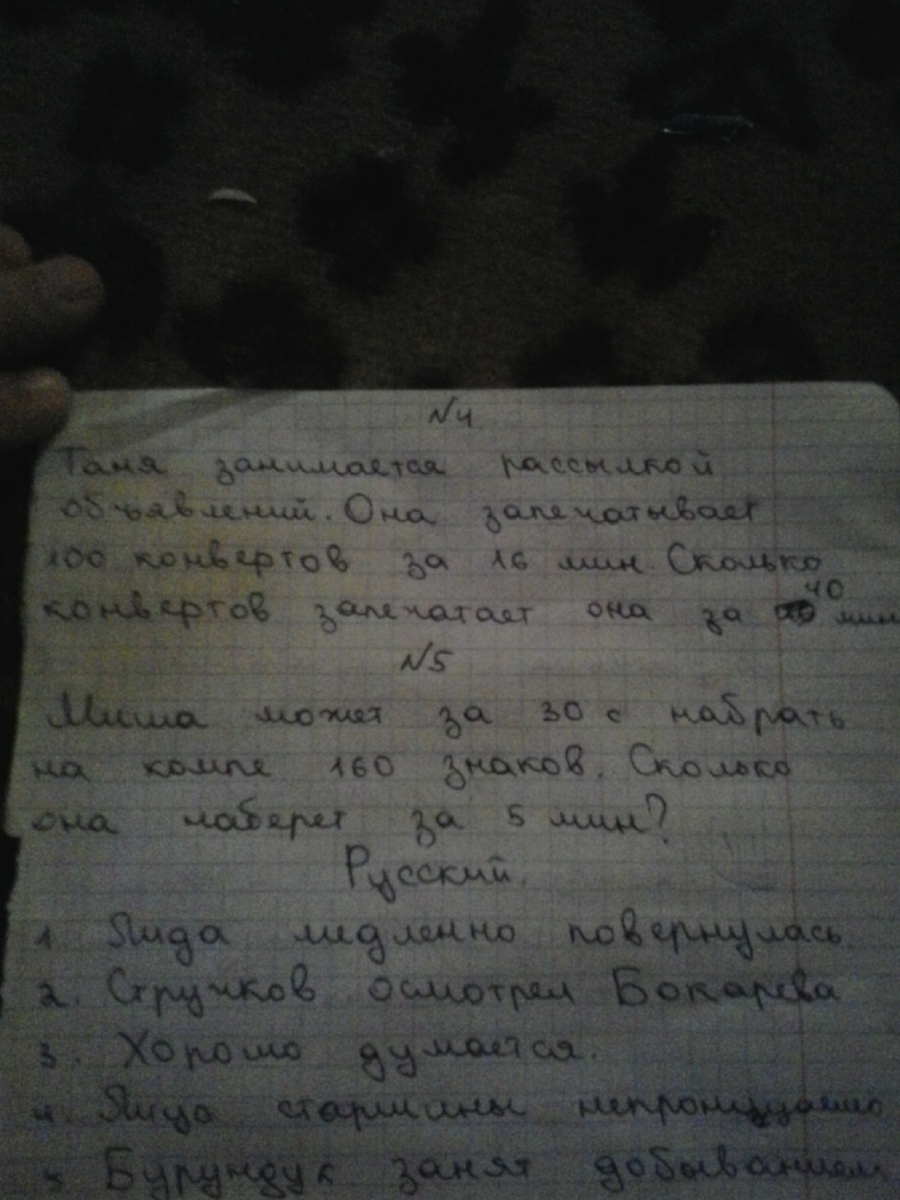 №4
Таня занимается рассылкой
объявлений. Она запечатывает
100 конвертов за 16 мин. Сколько
конвертов запечатает она за 40 мин
№5
Миша может за 30 с набрать
на компе 160 знаков. Сколько
она наберет за 5 мин?
Русский.
1. Лида медленно повернулась.
2. Стручков осмотрел Бокарева
3. Хорошо думается.
4. Лицо старшины непроницаемо
5 Бурундук занят добыванием